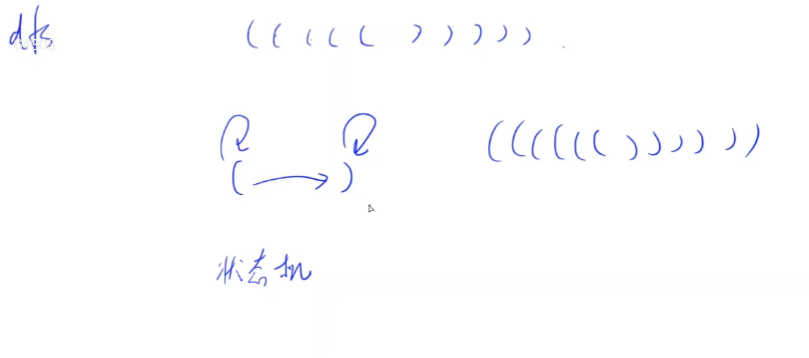 dfs ( ( ( ( ( ) ) ) ) )
( → ) ( ( ( ( ( ( ) ) ) ) ) )
状态机